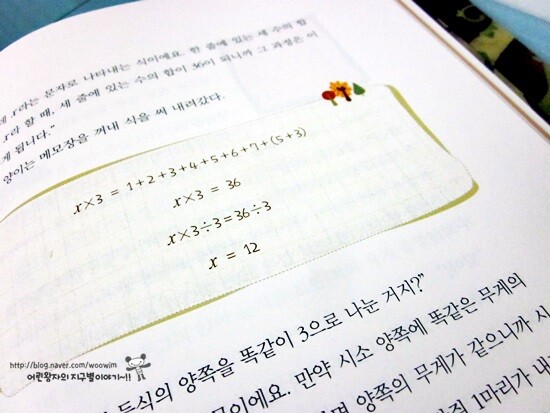 x라는 문자로 나타내는 식이에요. 한 줄에 있는 세 수의 합
x라 할 때, 세 줄에 있는 수의 합이 36이 되니까 그 과정은 이
게 됩니다."
양이는 메모장을 꺼내 식을 써 내려갔다.
x×3 = 1+2+3+4+5+6+7+(5+3)
x×3 = 36
x×3÷3=36÷3
x = 12
등식의 양쪽을 똑같이 3으로 나눈 거지?"
이에요. 만약 시소 양쪽에 똑같은 무게의
양쪽의 무게가 같으니까 시
1마리가 내
http://blog.naver.com/woowim
어린왕자의 지구별이야기~!!